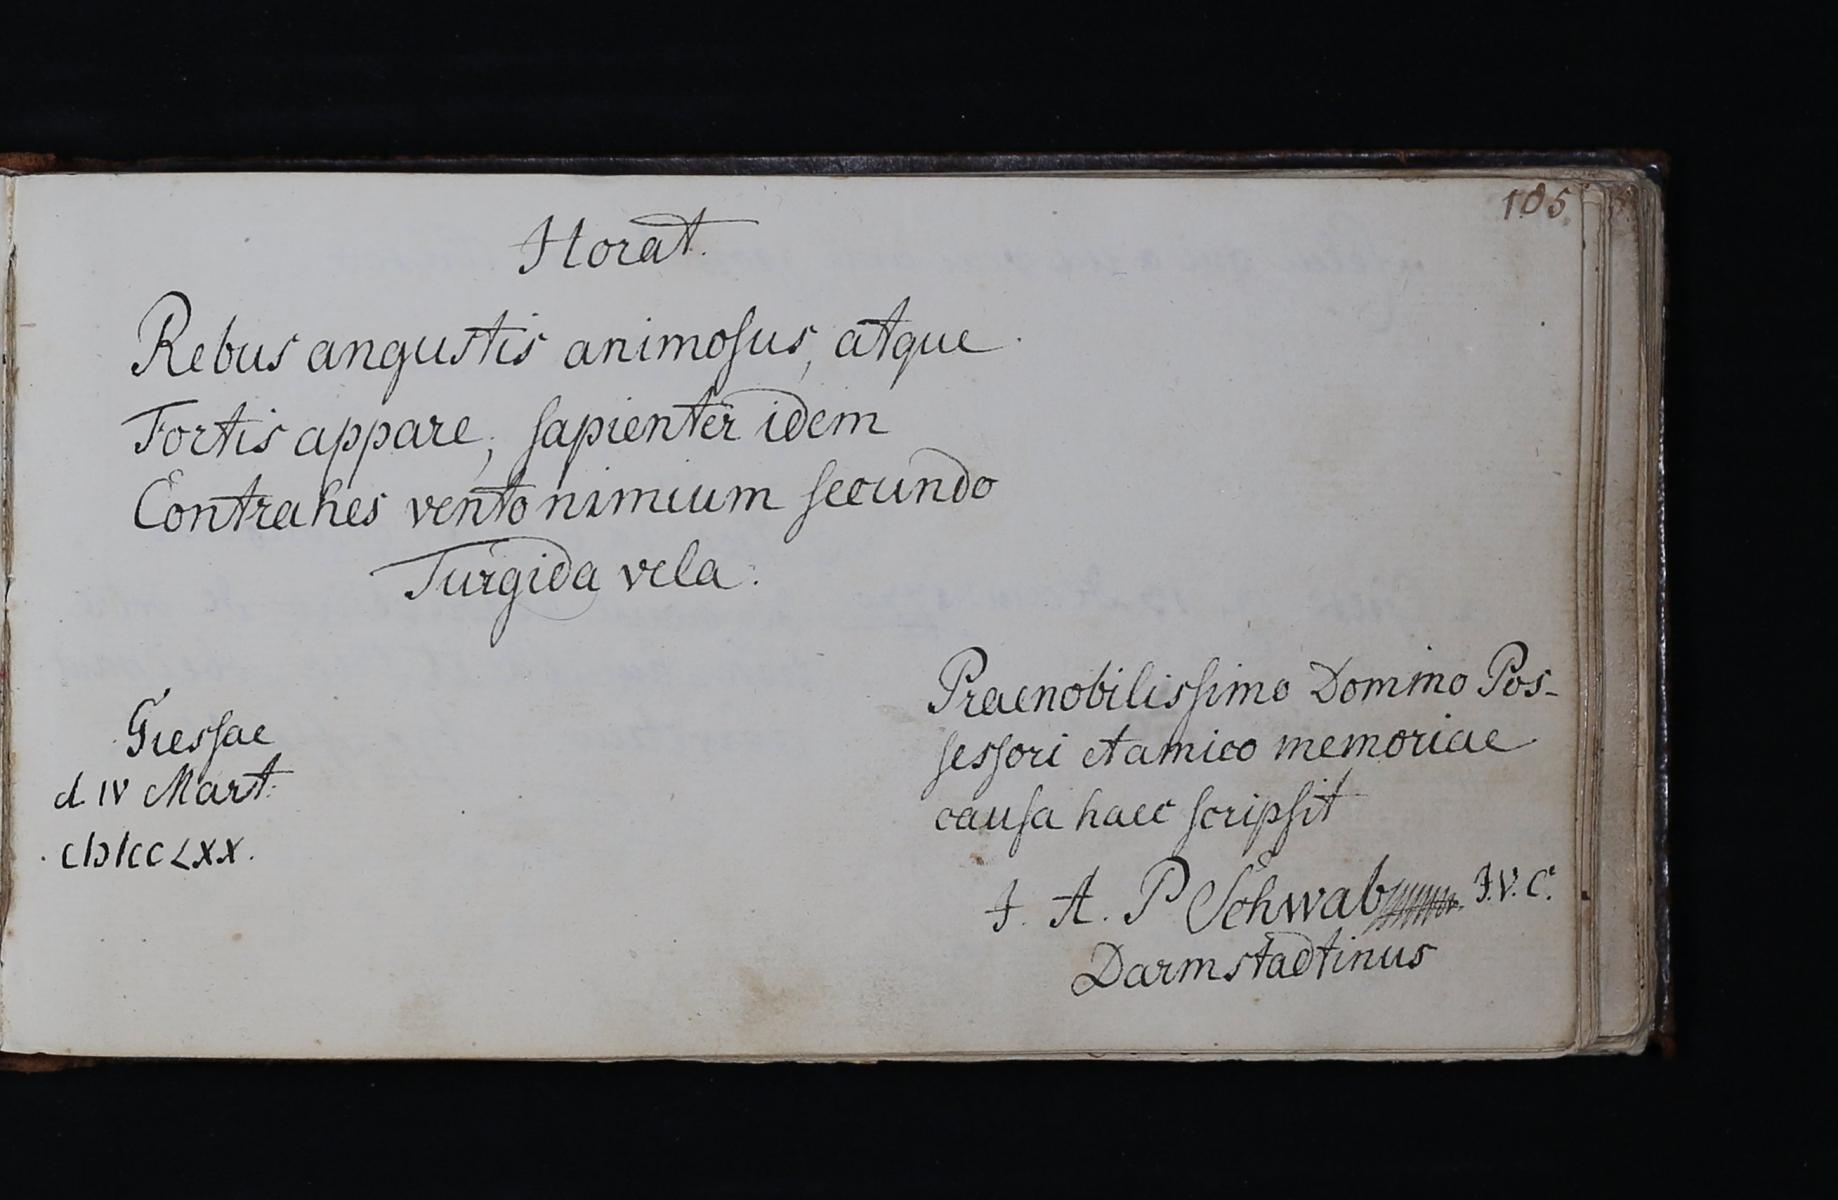 105
Horat.
Rebus angustis animosus, atque
Fortis appare; sapienter idem
Contrahes vento nimium secundo
Turgida vela.
Praenobilissimo Domino Pos-
sessori et amico memoriae
causa haec scripsit
J. A. P Schwab J. V. C.
Darmstadtinus
Giessae
d. IV Mart.
CIƆIƆCCLXX.